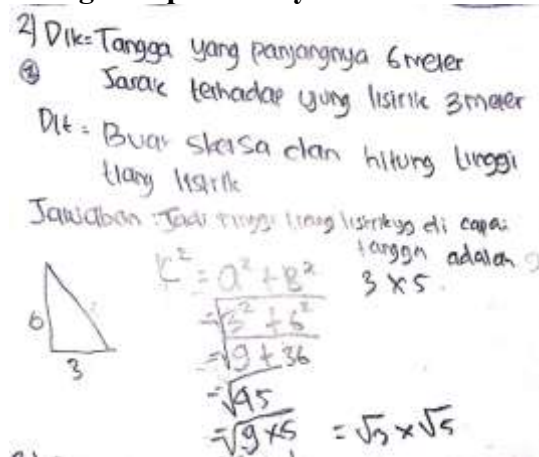 2) Dik = Tangga yang panjangnya 6 meter
Jarak terhadap ujung listrik 3 meter
Dit = Buat sketsa dan hitung tinggi
tiang listrik
Jawaban : Jadi tinggi tiang listrik yg di capai
tangga adalah
3 x 5
6
3
c² = a² + B²
= √3² + 6²
= √9 + 36
= √45
= √9 x 5 = √3 x √5